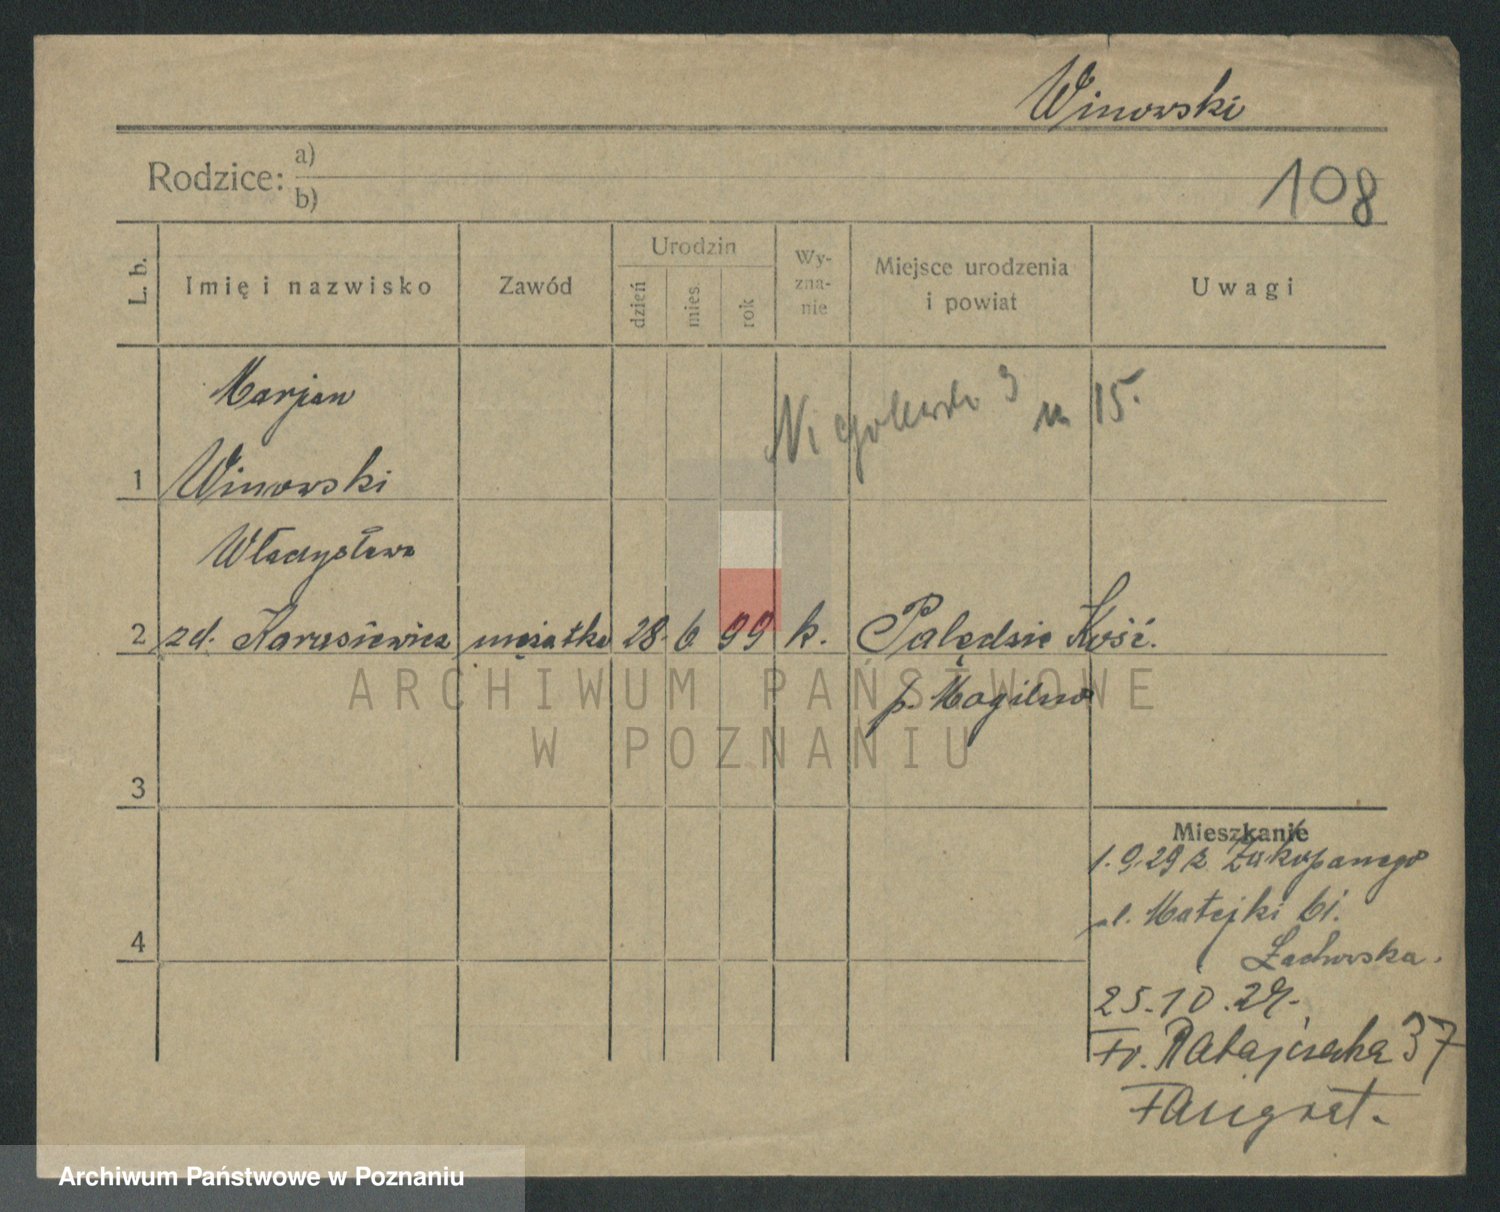 Winowski
Rodzice: a)
b)
108
L. b.
Imię i nazwisko
Zawód
Urodzin
dzień
mies.
rok
Wy-
zna-
nie
Miejsce urodzenia
i powiat
Uwagi
Marjan
m 15.
1 Winowski
Władysława
2 zd. Karasiewicz mężatka 28. 6 99 k. Palędzie Kość.
p. Mogilno
3
Mieszkanie
1.9.29 z Zakopanego
ul. Matejki 61.
4
25.10.29.
Fr. Ratajczaka 37
ARCHIWUM PAŃSTWOWE
W POZNANIU
Archiwum Państwowe w Poznaniu